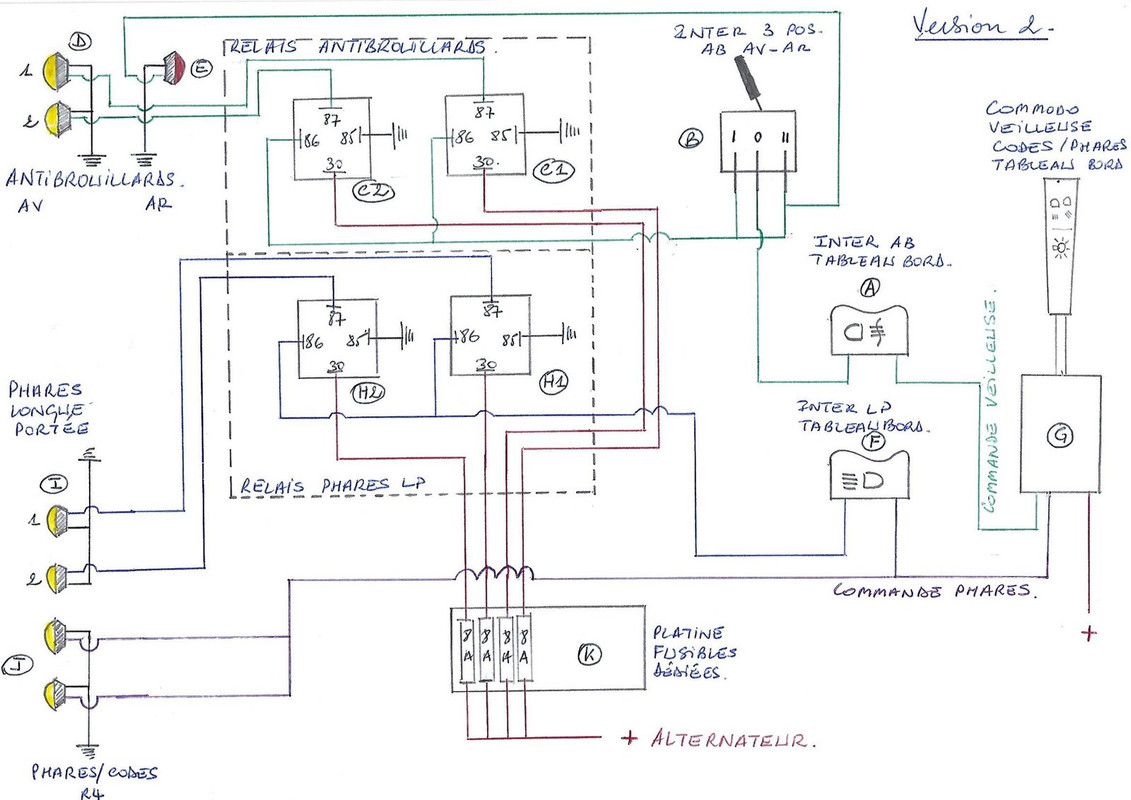 Version 2.
RELAIS ANTIBROUILLARDS.
INTER 3 POS.
AB AV-AR
D
1
E
2
ANTIBROUILLARDS.
AV AR
87
86 85
30
C2
87
86 85
30.
C1
B
I O II
COMMODO
VEILLEUSE
CODES/PHARES
TABLEAU BORD
INTER AB
TABLEAU BORD.
A
COMMANDE VEILLEUSE.
87
86 85
30
H2
87
86 85
30
H1
RELAIS PHARES LP
PHARES
LONGUE
PORTÉE
I
1
2
INTER LP
TABLEAU BORD.
F
G
COMMANDE PHARES.
+
J
8 A
8 A
8 A
8 A
K
PLATINE
FUSIBLES
DÉDIÉES.
+ ALTERNATEUR.
PHARES/CODES
R4